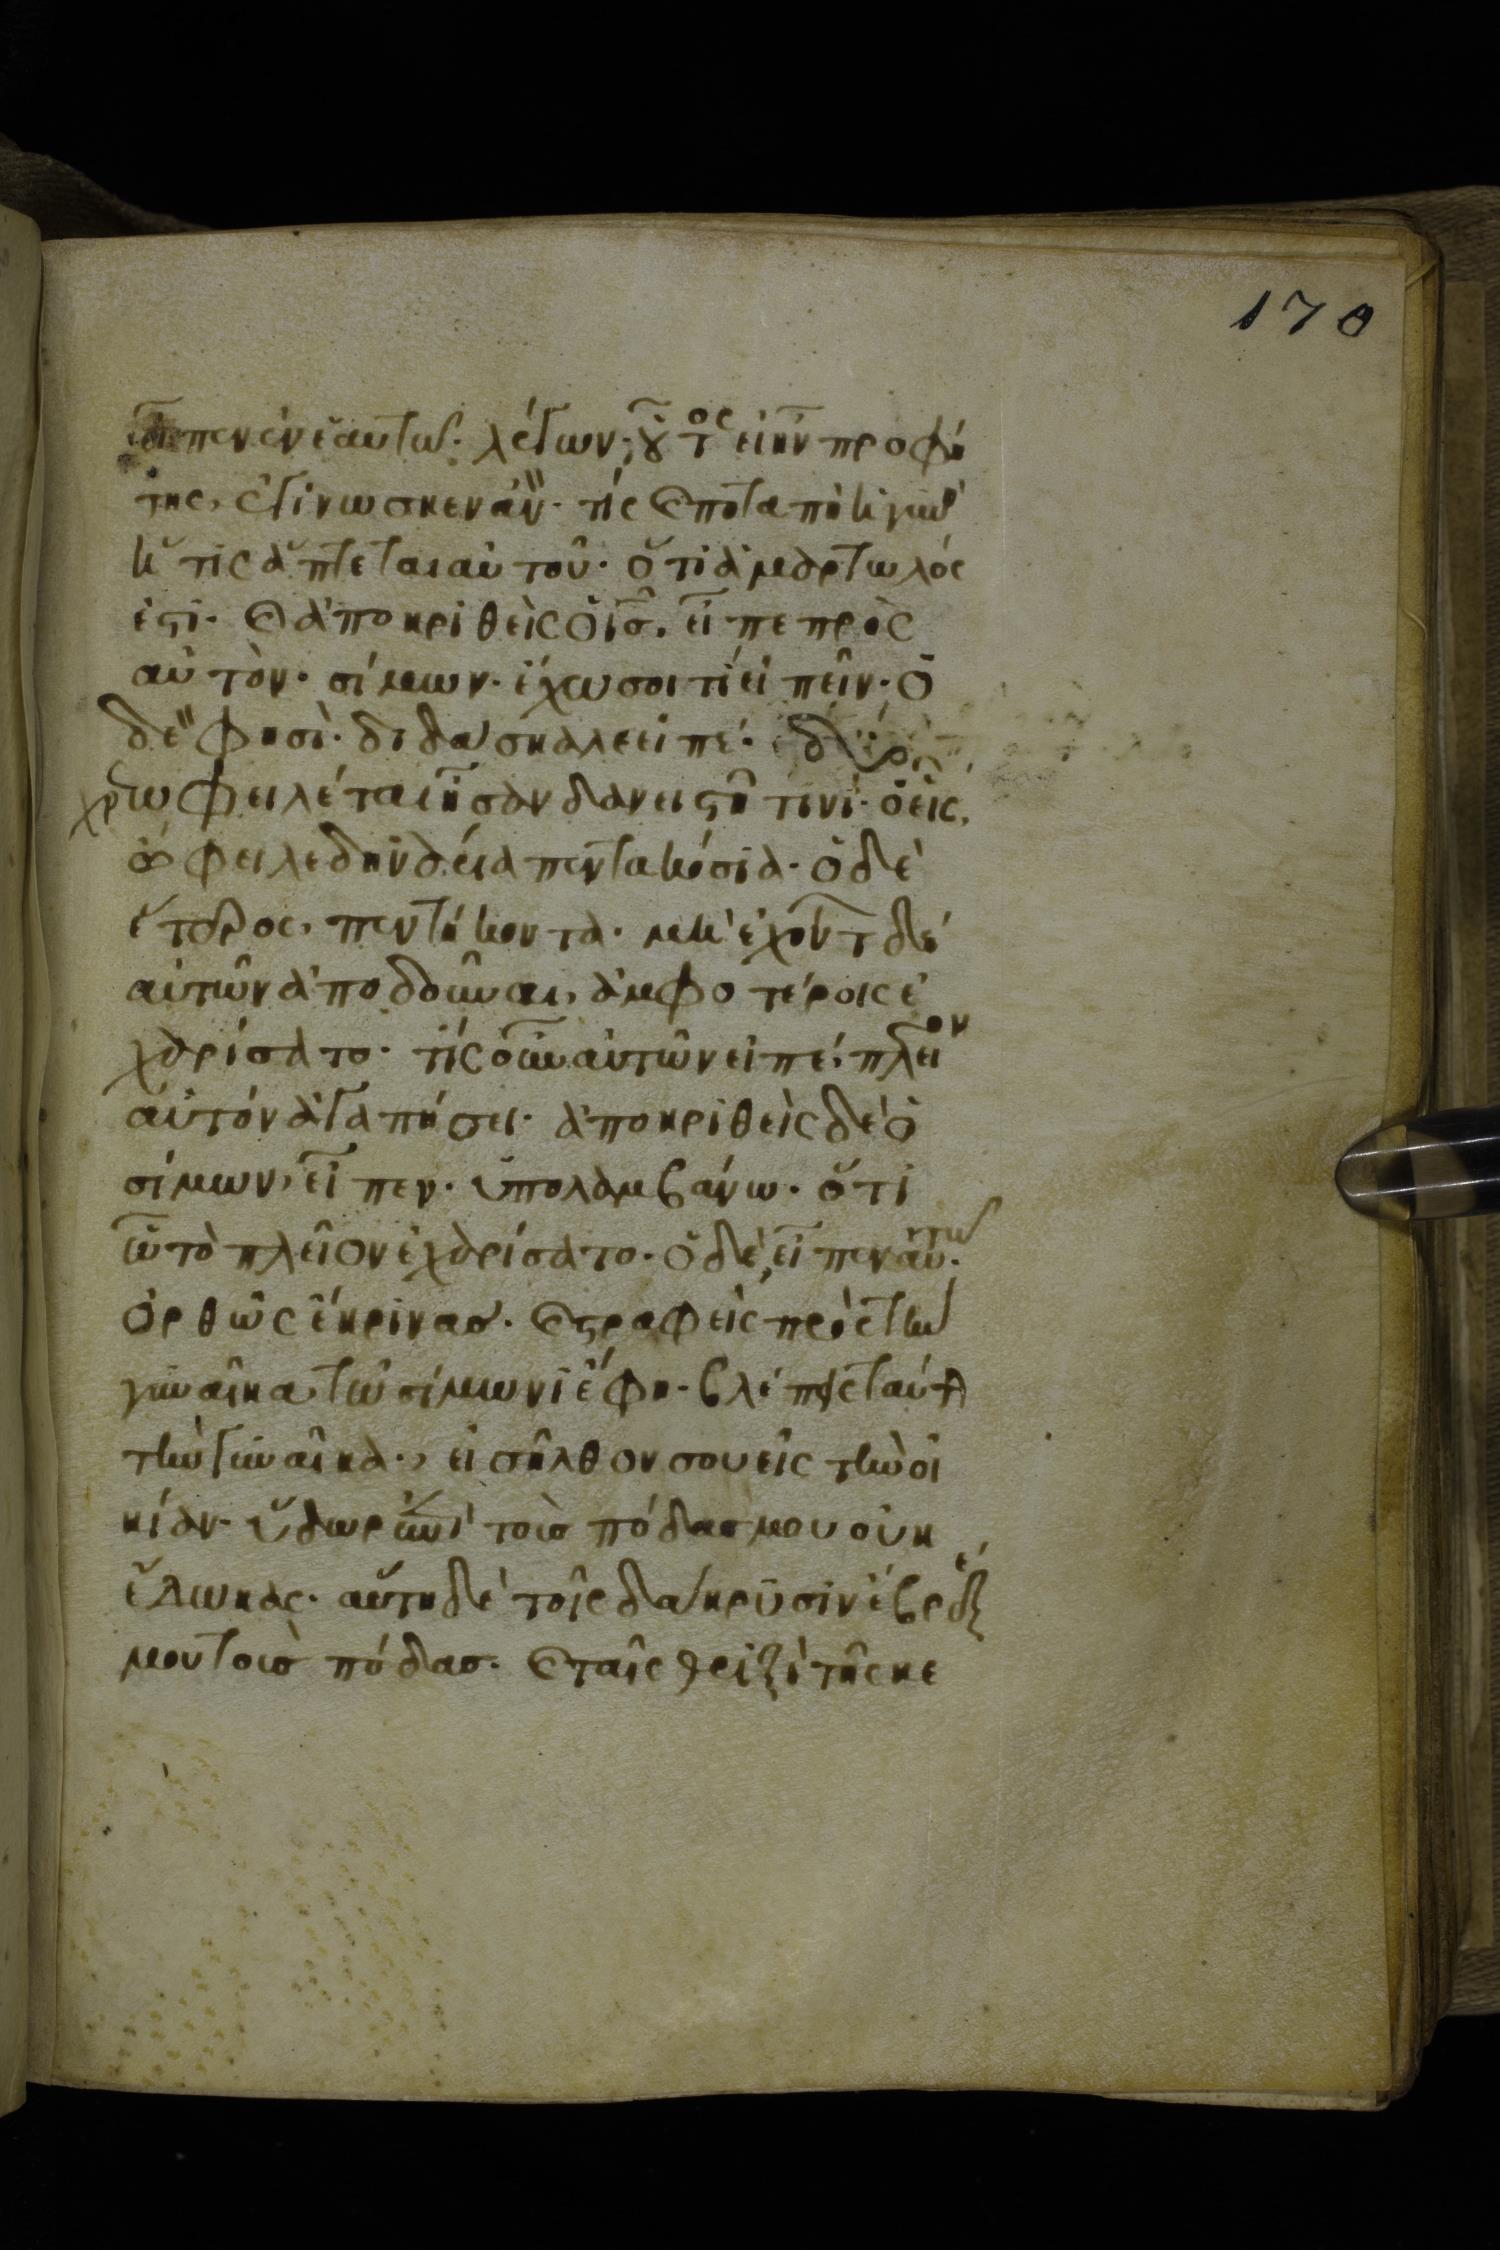 170
εἶπεν ἐν ἑαυτῶ· λέγων· οὗτος εἰ ἦν προφή
της, ἐγίνωσκεν ἂν· τίς καὶ ποταπὴ ἡ γυνὴ
ἥτις ἅπτεται αὐτοῦ· ὅτι ἁμαρτωλός
ἐστι· καὶ ἀποκριθεὶς ὁ ις, εἶπε πρὸς
αὐτὸν· σίμων· ἔχω σοί τι εἰπεῖν· ὁ
δέ φησὶ· διδάσκαλε εἰπέ· δύο
χρεωφειλέται ἦσαν δανειστῆ τινί· ὁ εἷς,
ὤφειλε δηνάρια πεντακόσια· ὁ δὲ
ἕτερος, πεντήκοντα· μὴ ἐχόντων δέ
αὐτῶν ἀποδοῦναι, ἀμφοτέροις ἐ
χαρίσατο· τίς οὖν αὐτῶν εἰπέ, πλεῖον
αὐτόν ἀγαπήσει· ἀποκριθεὶς δὲ ὁ
σίμων, εἶπεν· ὑπολαμβάνω· ὅτι
ὧ τὸ πλεῖον ἐχαρίσατο· ὁ δὲ, εἶπεν αὐτῶ·
ὀρθῶς ἔκρινας· καὶ στραφεὶς πρὸς τὴν
γυναῖκα, τῶ σίμωνι ἔφη· βλέπεις ταύτην
τὴν γυναῖκα·, εἰσῆλθον σου εἰς τὴν οἰ
κίαν· ὕδωρ ἐπὶ τοὺς πόδας μου οὐκ
ἔδωκας· αὕτη δὲ τοῖς δάκρυσιν ἔβρεξέ
μου τοὺς πόδας· καὶ ταῖς θριξὶ τῆς κε